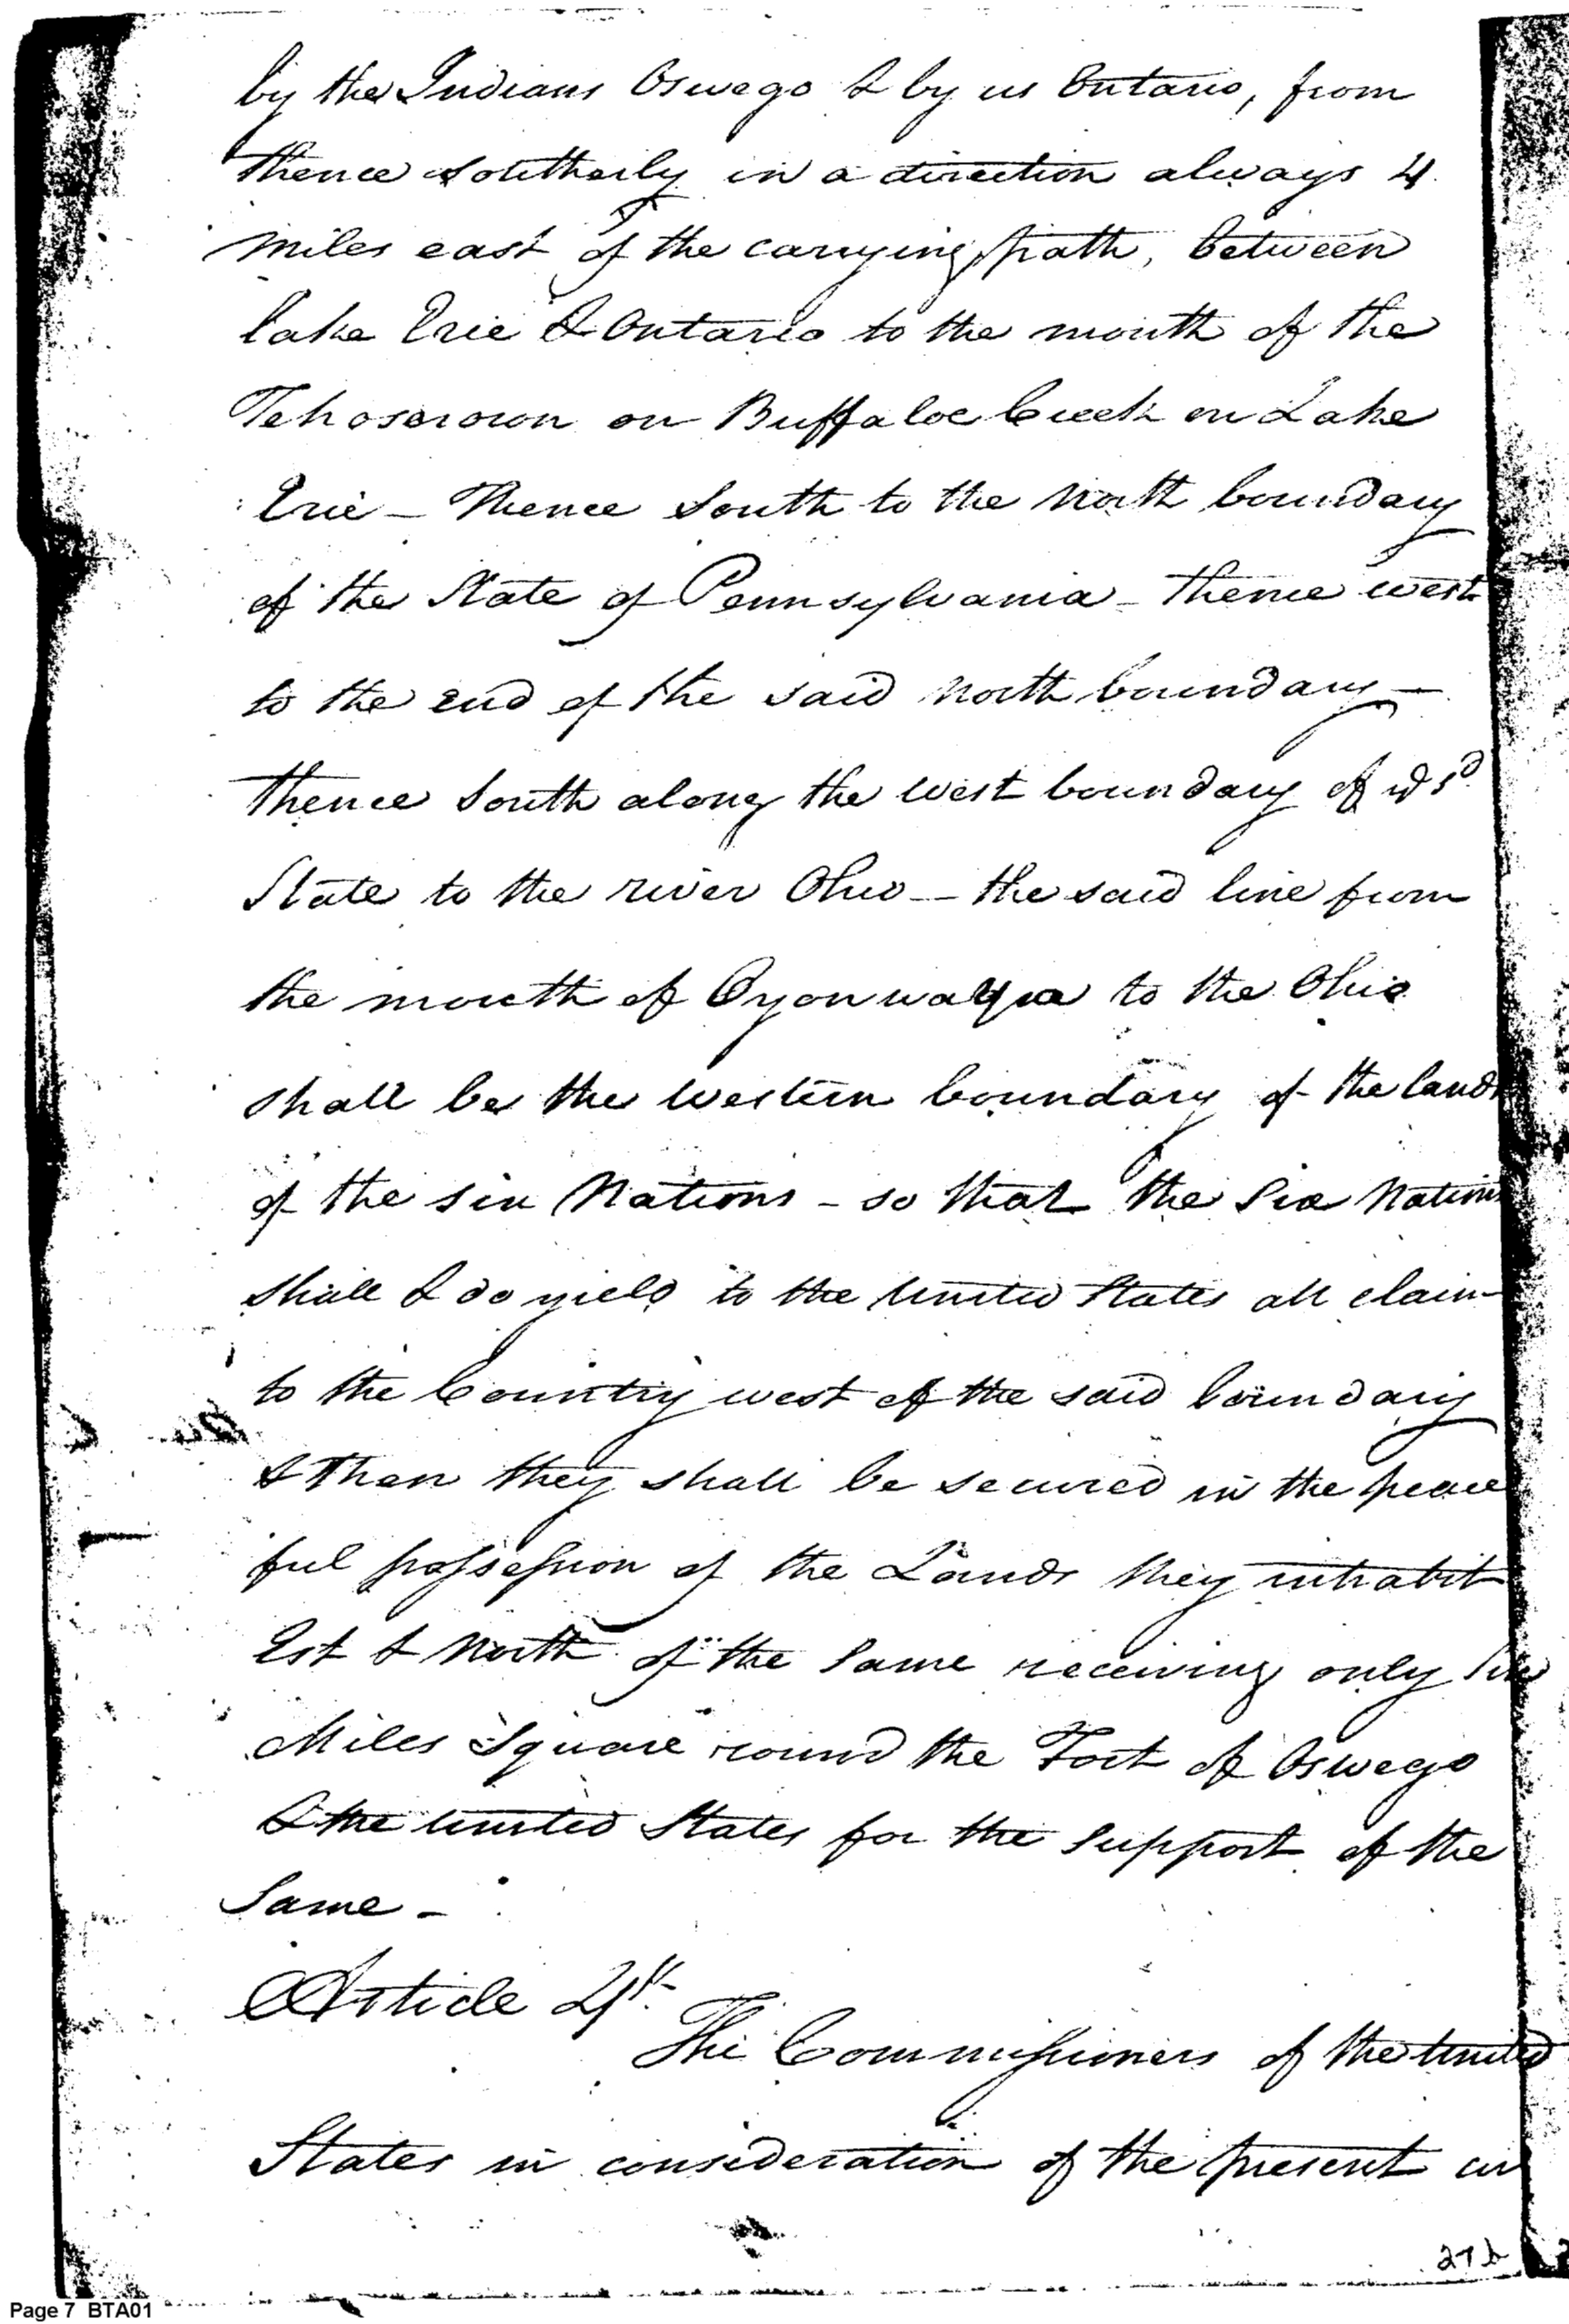 by the Indians Oswego & by us Ontario, from
thence southerly in a direction always 4
miles east of the carrying path, between
lake Erie & Ontario to the mouth of the
Tehoseroron on Buffaloe Creek on Lake
Erie - Thence South to the north boundary
of the State of Pennsylvania - thence west
to the end of the said north boundary -
thence South along the west boundary of sd
State to the river Ohio - the said line from
the mouth of Oyonwayea to the Ohio
shall be the western boundary of the lands
of the six Nations - so that the Six Nations
shall & do yield to the United States all claim
to the Country west of the said boundary
& then they shall be secured in the peace
ful possession of the Lands they inhabit
Est & North of the same receiving only Six
Miles Square round the Fort of Oswego
& the United States for the support of the
Same -
Article 4th
The Commissioners of the United
States in consideration of the present
276
Page 7 BTA01